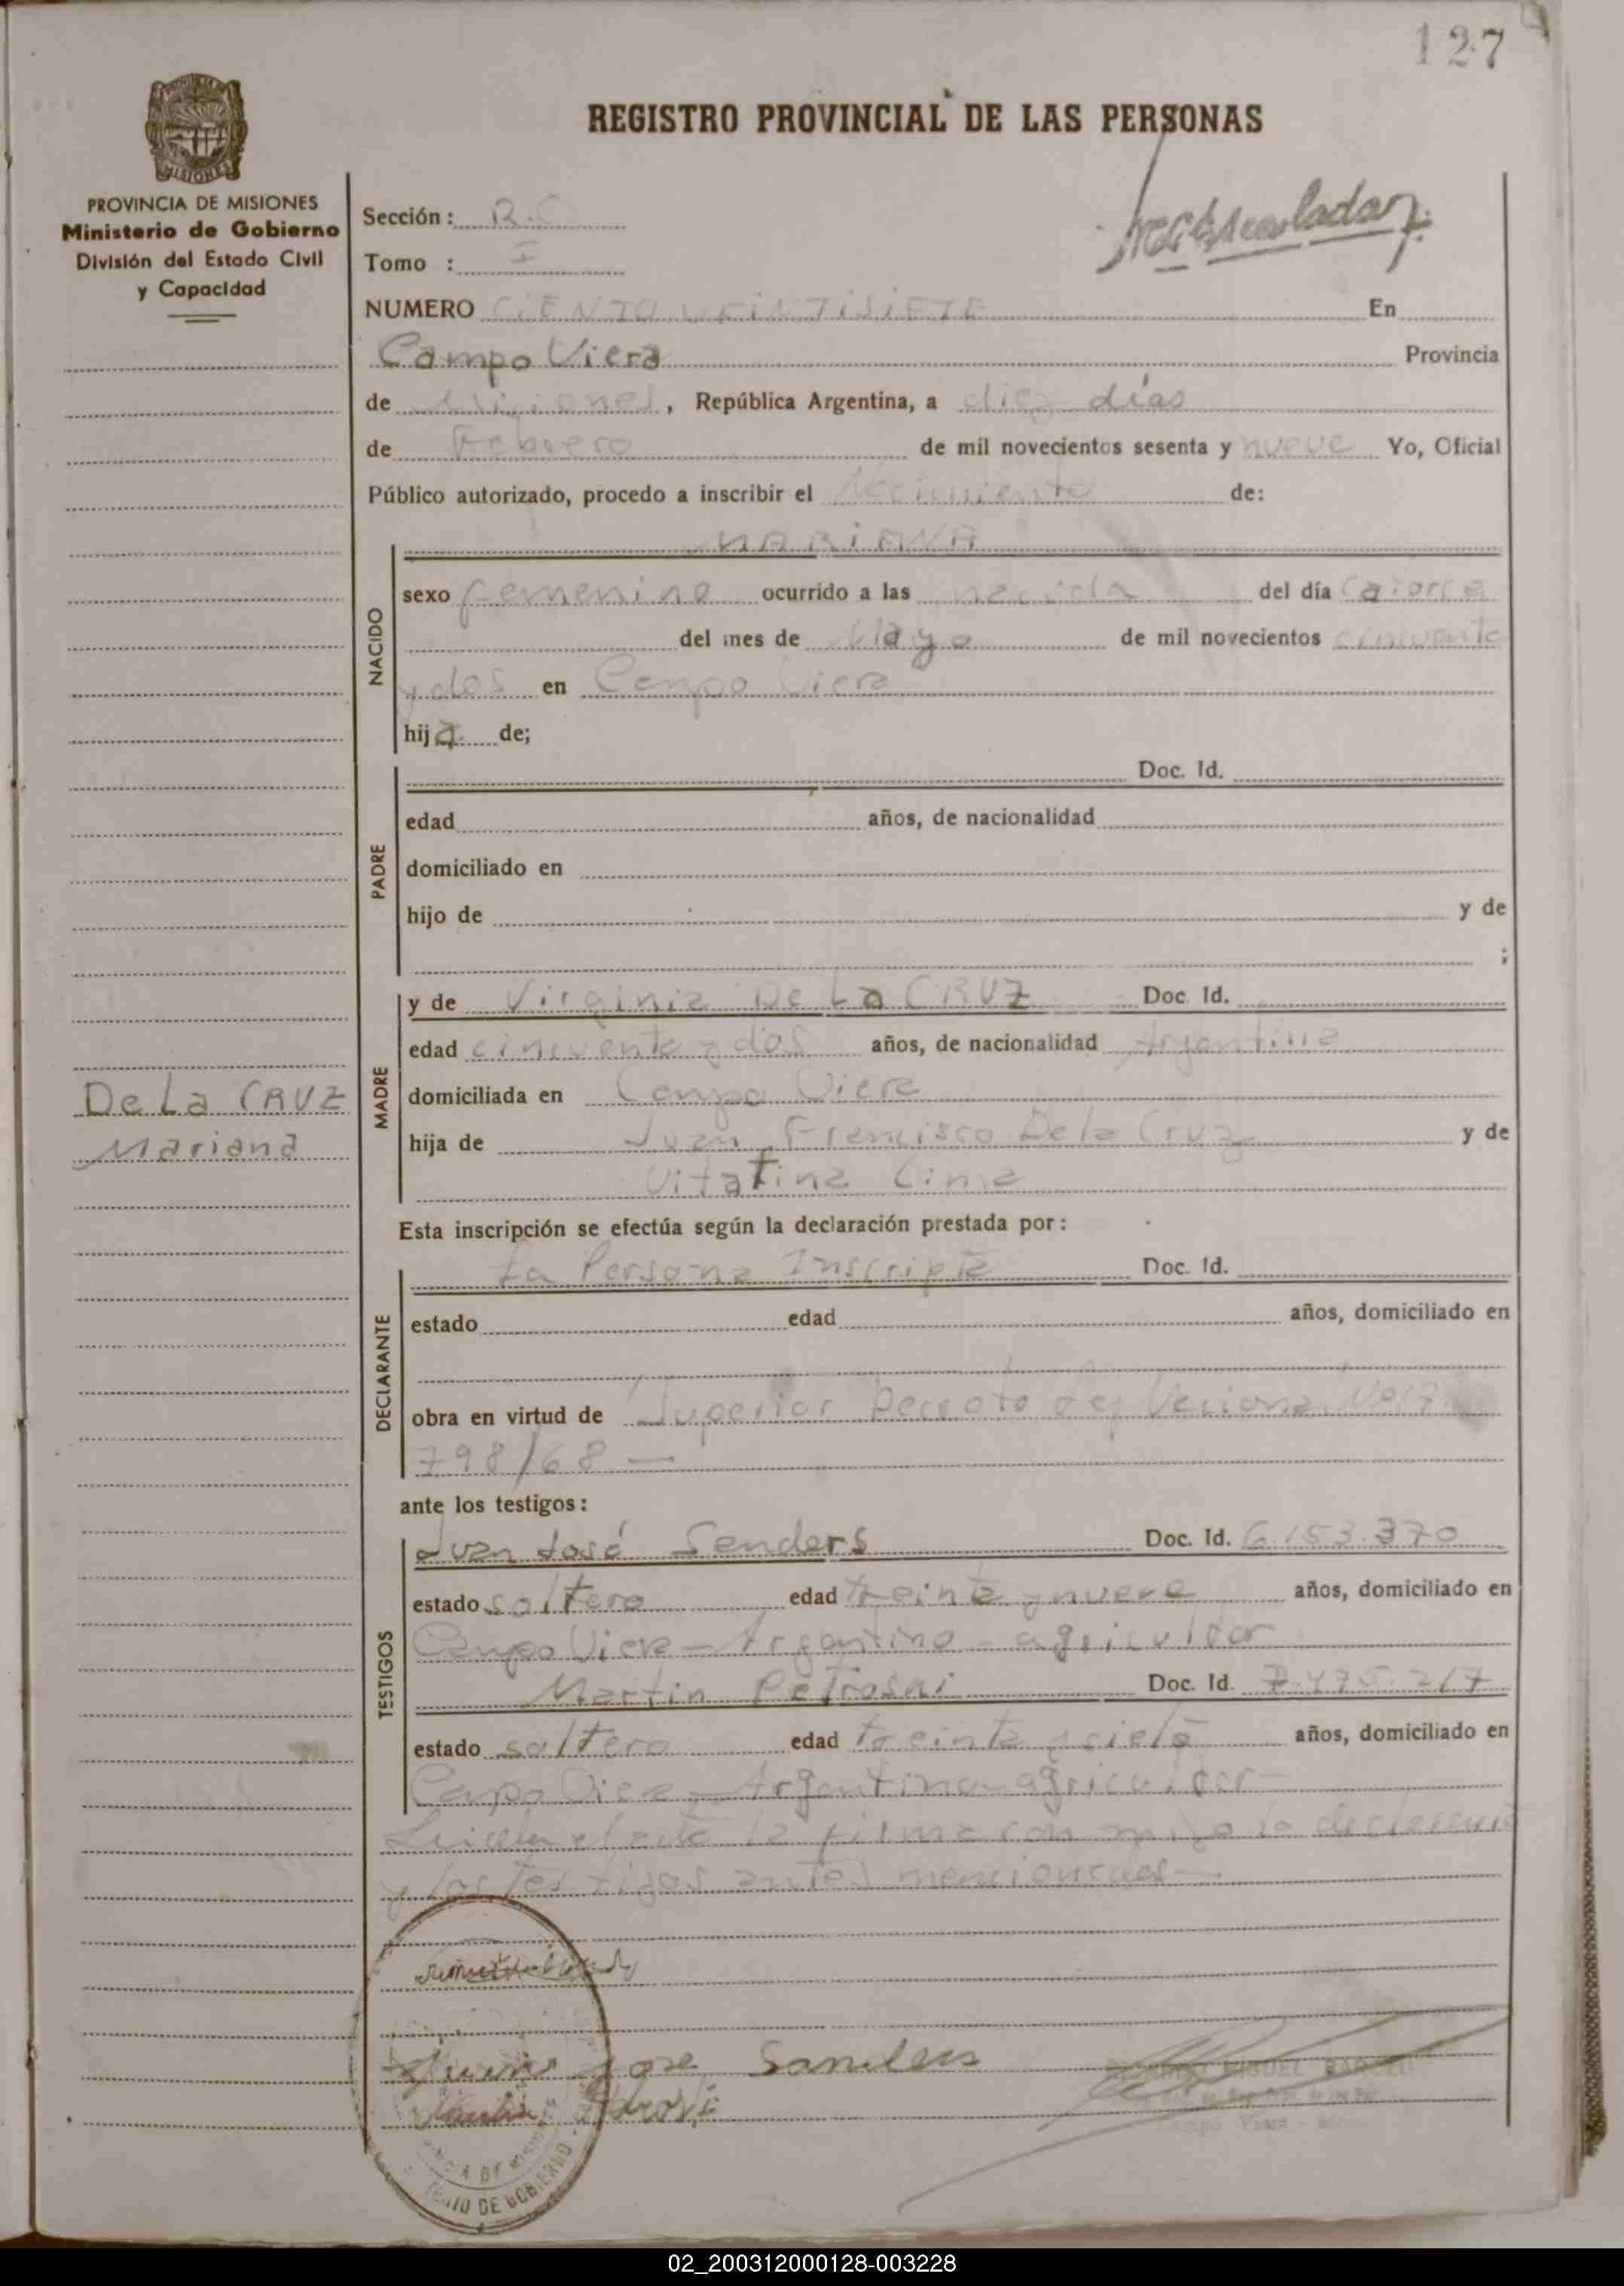 127
REGISTRO PROVINCIAL DE LAS PERSONAS
MISIONES
PROVINCIA DE MISIONES
Ministerio de Gobierno
División del Estado Civil
y Capacidad
Sección: R.C
Tomo : I
NUMERO CIENTO VEINTISIETE En
Campo Viera Provincia
de Misiones, República Argentina, a diez días
de Febrero de mil novecientos sesenta y nueve Yo, Oficial
Público autorizado, procedo a inscribir el Nacimiento de:
MARIANA
NACIDO
sexo femenino ocurrido a las nacida del día catorce
del mes de Mayo de mil novecientos cincuenta
y dos en Campo Viera
hija de;
PADRE
Doc. Id.
edad años, de nacionalidad
domiciliado en
hijo de y de
;
MADRE
y de Virginia De La CRUZ Doc. Id.
edad cincuenta y dos años, de nacionalidad Argentina
De La CRUZ
Mariana
domiciliada en Campo Viera
hija de Juan Francisco De la Cruz y de
Vitatina Lima
Esta inscripción se efectúa según la declaración prestada por:
DECLARANTE
La Persona Inscripta Doc. Id.
estado edad años, domiciliado en
obra en virtud de Superior Decreto Ley Nº 17
798/68 —
ante los testigos:
TESTIGOS
Juan José Senders Doc. Id. 6.153.370
estado soltero edad treinta y nueve años, domiciliado en
Campo Viera - Argentino - agricultor
Martin Petroski Doc. Id. 7.475.217
estado soltero edad treinta y siete años, domiciliado en
Campo Viera - Argentino - agricultor -
Leida el acta la firma con migo la declarante
y los testigos antes mencionados —
Juan Jose Sanders
MIGUEL
Campo Viera
TERIO DE GOBIERNO
02_200312000128-003228